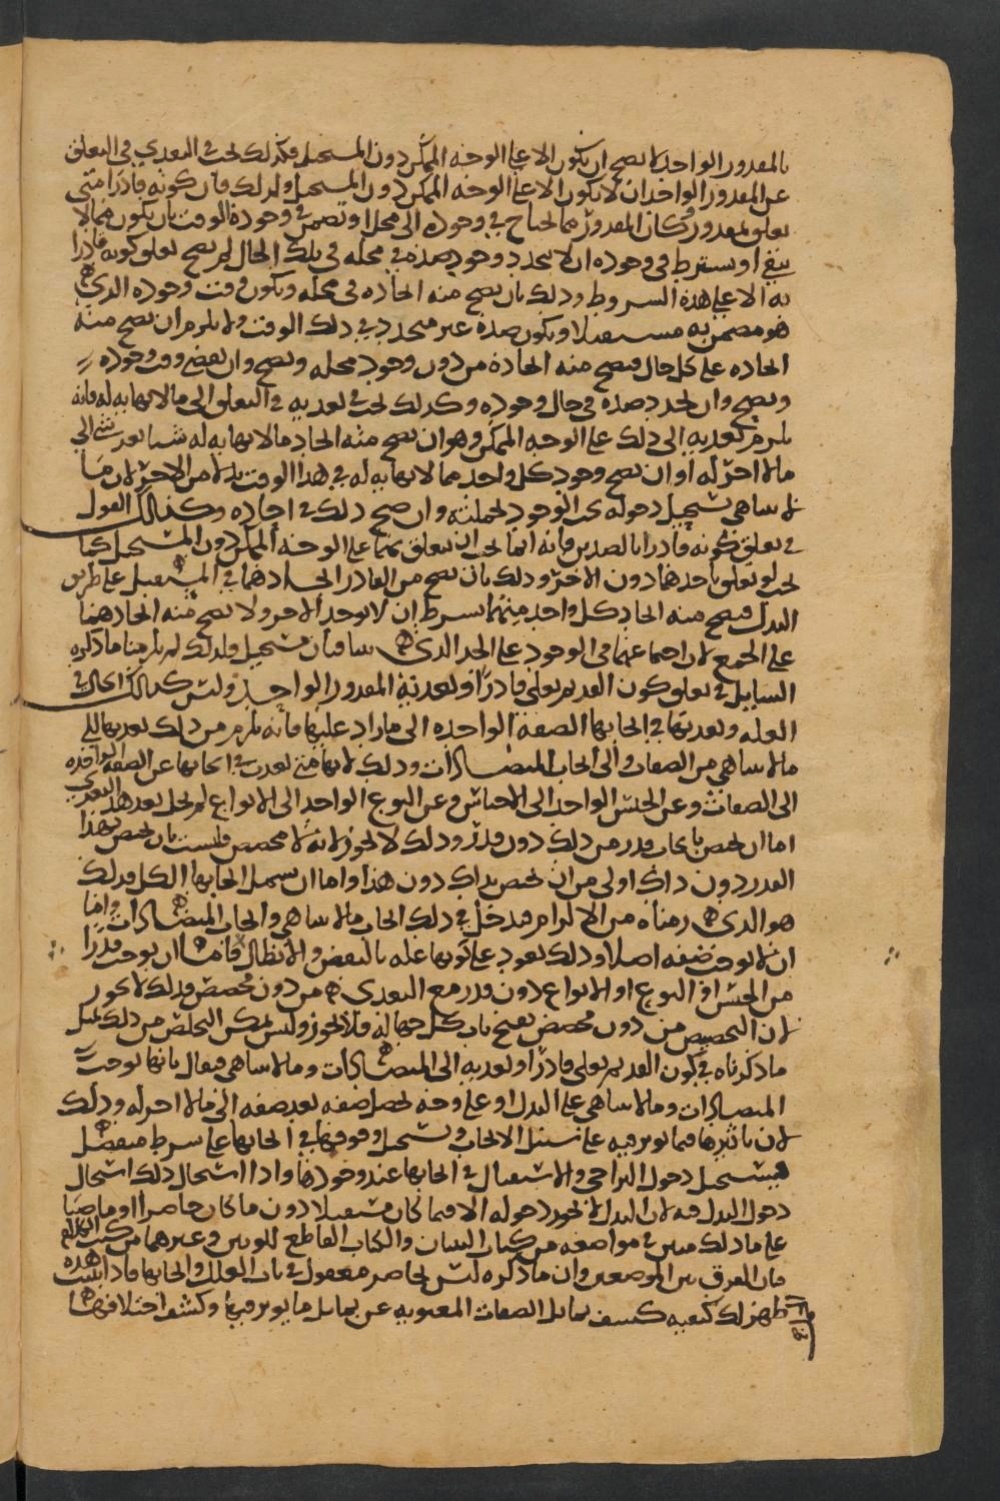 بالمقدور الواحد لا يصح ان يكون الا على الوجه الممكن دون المستحيل فكذلك يجب في التعدي في التعلق
عن المقدور الواحد ان لا يكون الا على الوجه الممكن دون المستحيل ولذلك فان كونه قادرا متى
تعلق بمقدور وكان المقدور مما يحتاج في وجوده الى محل او تضمن في وجوده الوقت بان يكون مما لا
يبقى او يشترط في وجوده ان لا يتجدد وجود ضده في محله في تلك الحال لم يصح تعلق كونه قادرا
به الا على هذه الشروط وذلك بان يصح منه ايجاده في محله ويكون وقت وجوده الذي
هو مضمن به مستقبلا ويكون ضده غير متجدد في ذلك الوقت ولا يلزم ان يصح منه
ايجاده على كل حال فيصح منه ايجاده من دون وجود محله ويصح وان تقضى وقت وجوده
ويصح وان تجدد ضده في حال وجوده وكذلك يجب في تعديه في التعلق الى ما لا نهاية له فانه
يلزم تعديه الى ذلك على الوجه الممكن وهو ان يصح منه ايجاد ما لا نهاية له شيا بعد شي الى
ما لا اخر له او ان يصح وجود كل واحد مما لا نهاية له في هذا الوقت بدلا من الاخر لان ما
لا يتناهى يستحيل دخوله تحت الوجود بجملته وان صح ذلك في احاده وكذلك القول
في تعلق كونه قادرا بالضدين فانه انما يجب ان يتعلق بهما على الوجه الممكن دون المستحيل كما
يجب لو تعلق باحدهما دون الاخر وذلك بان يصح من القادر ايجادهما في المستقبل على طريق
البدل فيصح منه ايجاد كل واحد منهما بشرط ان لا يوجد الاخر ولا يصح منه ايجادهما
على الجمع لان اجتماعهما في الوجود على الحد الذي يتنافيان مستحيل فلذلك لم يلزمنا ما ذكره
السايل في تعلق كون القديم تعالى قادرا وتعديه المقدور الواحد وليس كذلك الحال في
العلة وتعديها في ايجابها الصفة الواحدة الى ما زاد عليها فانه يلزم من ذلك تعديها الى
ما لا يتناهى من الصفات والى ايجاب المتضادات وذلك لانها متى تعدت في ايجابها عن الصفة الواحدة
الى الصفات وعن الجنس الواحد الى الاجناس وعن النوع الواحد الى الانواع لم يخل بعد هذا التعدي
اما ان تختص بايجاب قدر من ذلك دون قدر وذلك لا يجوز لانه لا مخصص فليست بان تختص بهذا
القدر دون ذاك اولى من ان تختص بذاك دون هذا واما ان يشمل ايجابها الكل فذلك
هو الذي رمناه من الالزام فدخل في ذلك ايجاب ما لا يتناهى وايجاب المتضادات واما
ان لا توجب صفة اصلا وذلك يعود على كونها علة بالنقض والابطال فاما ان توجب قدرا
من الجنس او النوع او الانواع دون قدر مع التعدي من دون مخصص فذلك لا يجوز
لان التخصيص من دون مخصص يفتح باب كل جهالة فلا يجوز وليس يمكن التخلص من ذلك بمثل
ما ذكرناه في كون القديم تعالى قادرا وتعديه الى المتضادات وما لا يتناهى فيقال بانها توجب
المتضادات وما لا يتناهى على البدل او على وجه يحصل صفة بعد صفة الى ما لا اخر له وذلك
لان تاثيرها فيما تؤثر فيه على سبيل الايجاب ويستحيل وقوفها في ايجابها على شرط منفصل
فيستحيل دخول التراخي والاستقبال في ايجابها عند وجودها واذا استحال ذلك استحال
دخول البدل فيه لان البدل لا يجوز دخوله الا فيما كان مستقبلا دون ما كان حاضرا او ماضيا
على ما ذلك مبين في مواضعه من كتاب البيان والكتاب القاطع للوتين وغيرهما من كتب الكلام
فبان الفرق بين الموضعين وان ما ذكره ليس بحاصر معقول في باب العلل وايجابها فاذا ثبتت هذه
ظهر لك كيفية كشف تماثل الصفات المعنوية عن تماثل ما يؤثر فيها وكشف اختلافها